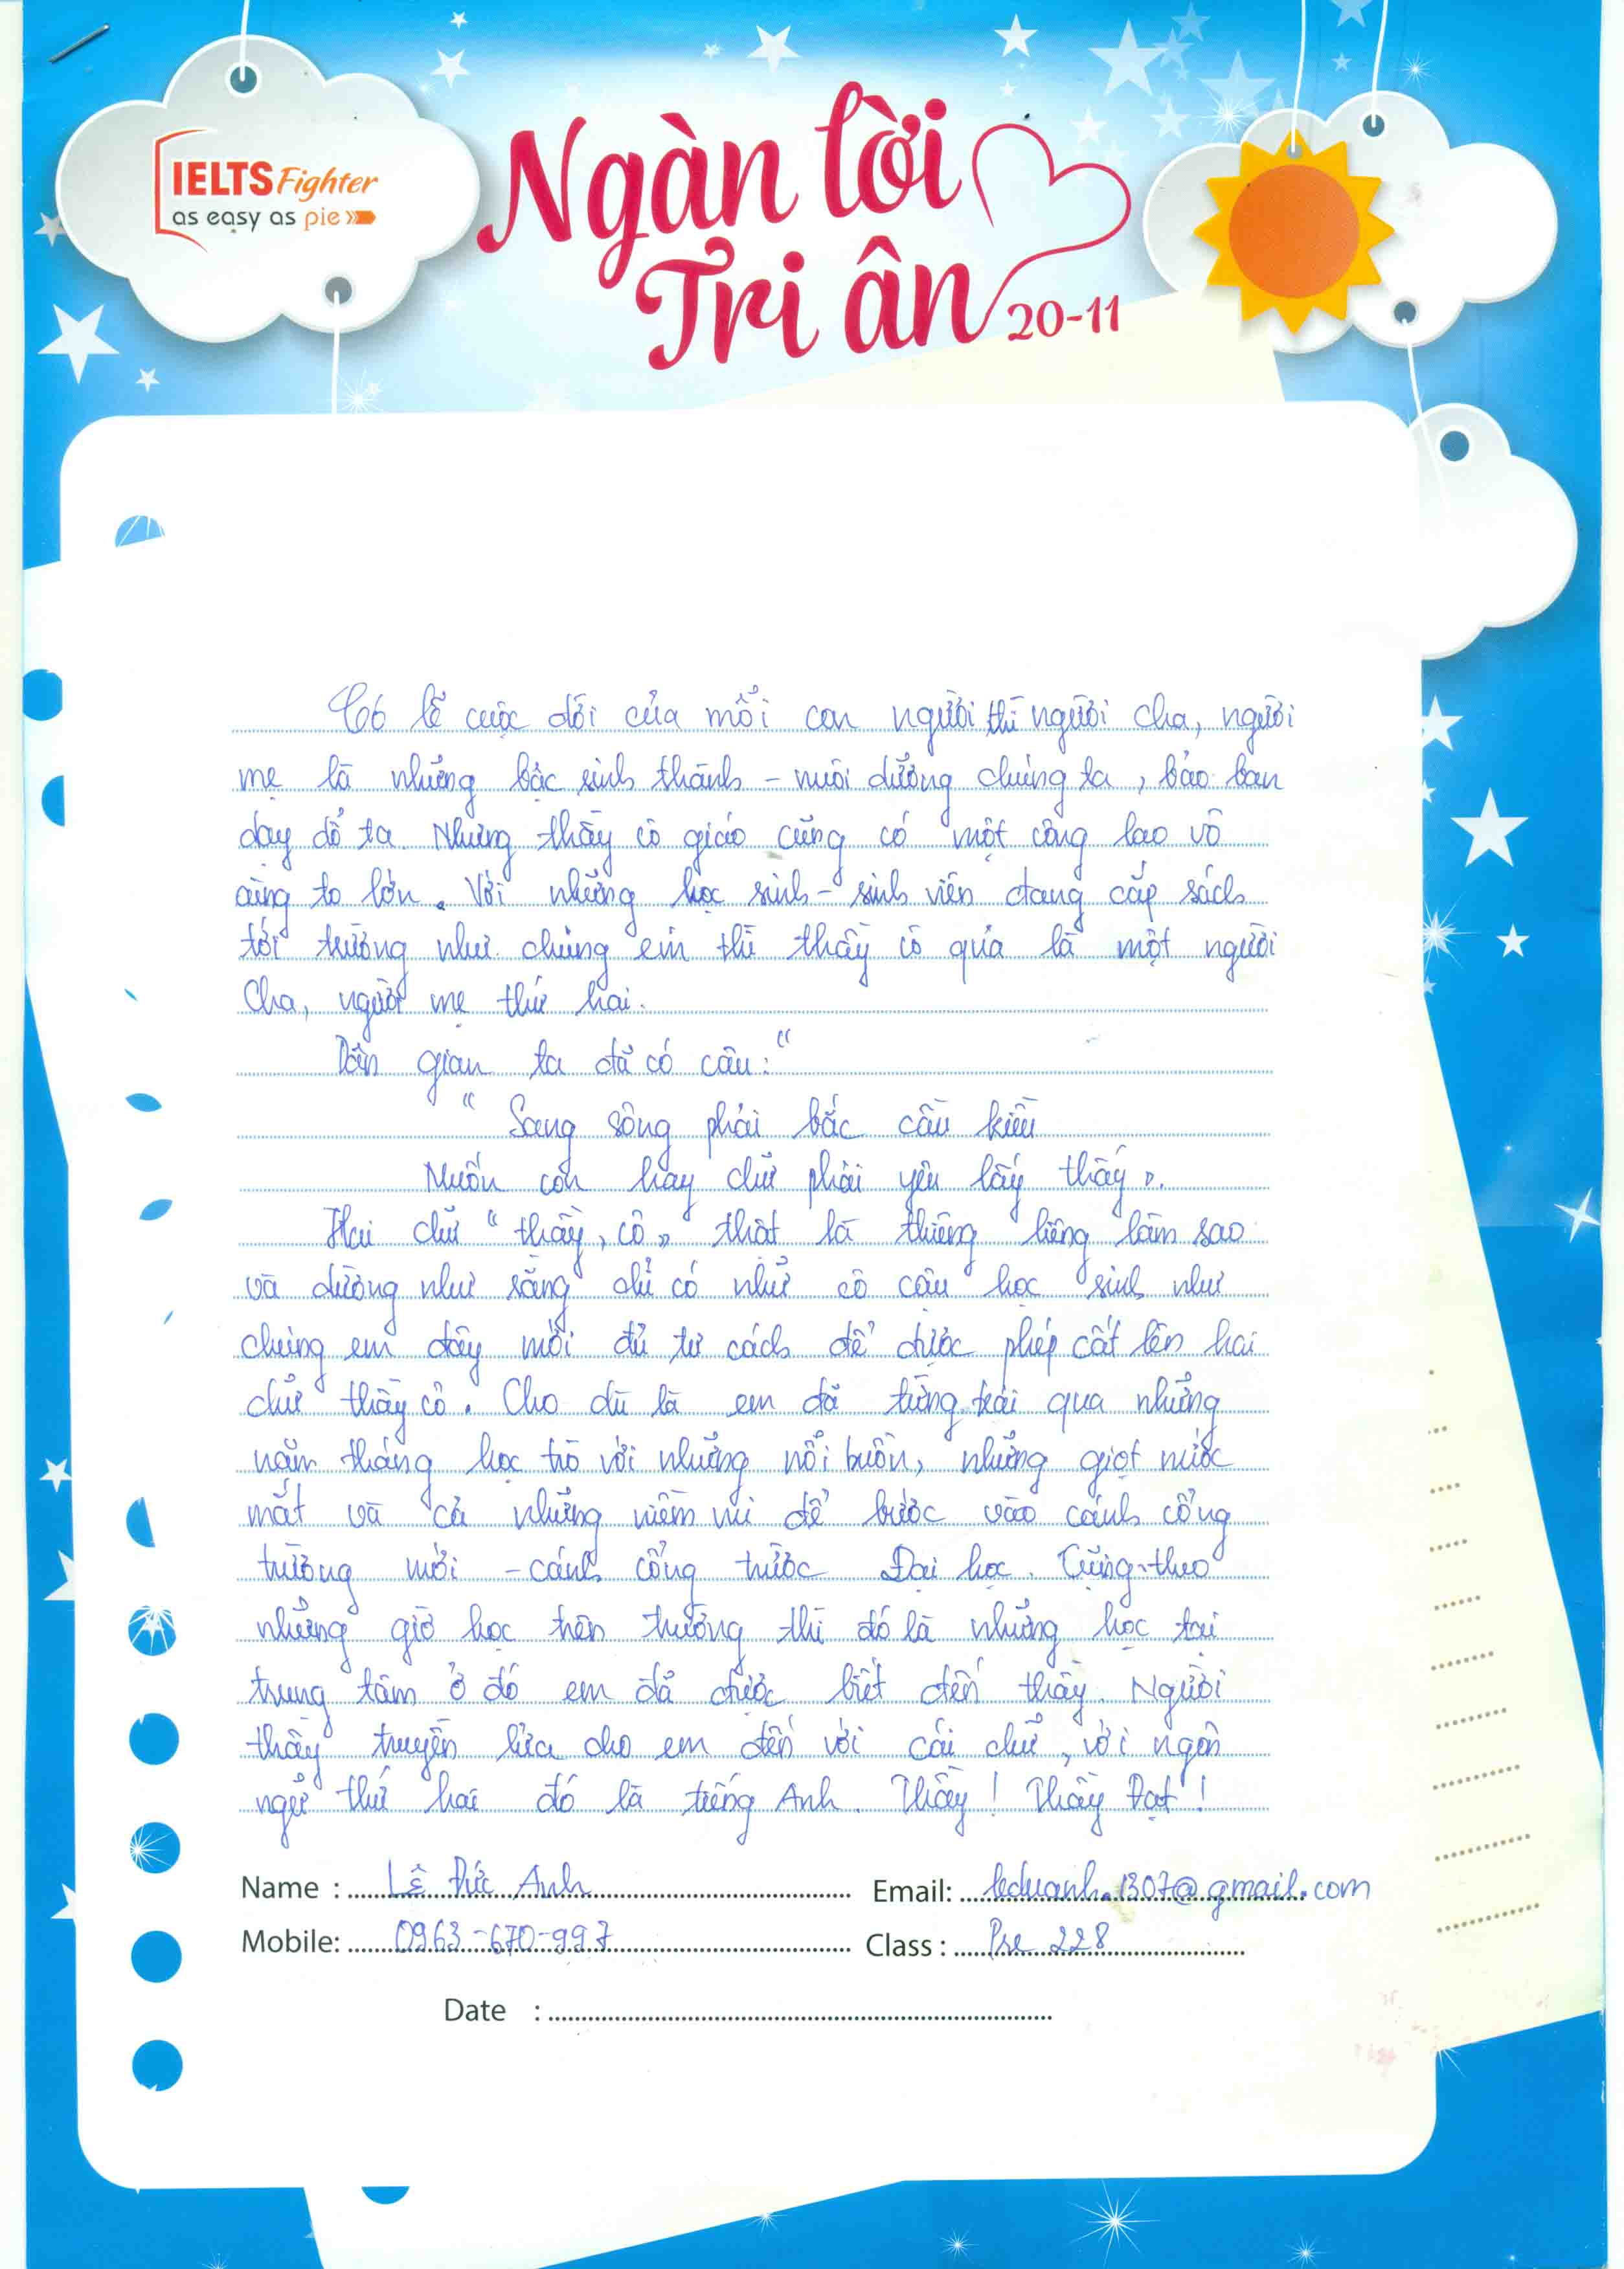 IELTS Fighter
as easy as pie
Ngàn lời
Tri ân
20-11
Có lẽ cuộc đời của mỗi con người thì người cha, người
mẹ là những bậc sinh thành - nuôi dưỡng chúng ta, bảo ban
dạy dỗ ta. Nhưng thầy cô giáo cũng có một công lao vô
cùng to lớn. Với những học sinh - sinh viên đang cắp sách
tới trường như chúng em thì thầy cô quả là một người
Cha, người mẹ thứ hai.
Dân gian ta đã có câu: "
" Sang sông phải bắc cầu kiều
Muốn con hay chữ phải yêu lấy thầy ".
Hai chữ " thầy, cô " thật là thiêng liêng làm sao
và dường như rằng chỉ có như cô cậu học sinh như
chúng em đây mới đủ tư cách để được phép cất lên hai
chữ thầy cô. Cho dù là em đã từng trải qua những
năm tháng học trò với những nỗi buồn, những giọt nước
mắt và cả những niềm vui để bước vào cánh cổng
trường mới - cánh cổng trước Đại học. Cũng theo
những giờ học trên trường thì đó là những học tại
trung tâm ở đó em đã được biết đến thầy. Người
thầy truyền lửa cho em đến với cái chữ, với ngôn
ngữ thứ hai đó là tiếng Anh. Thầy! Thầy Đạt!
Name : Lê Đức Anh Email: leduanh.1307@gmail.com
Mobile: 0963-670-997 Class : Pre 228
Date :